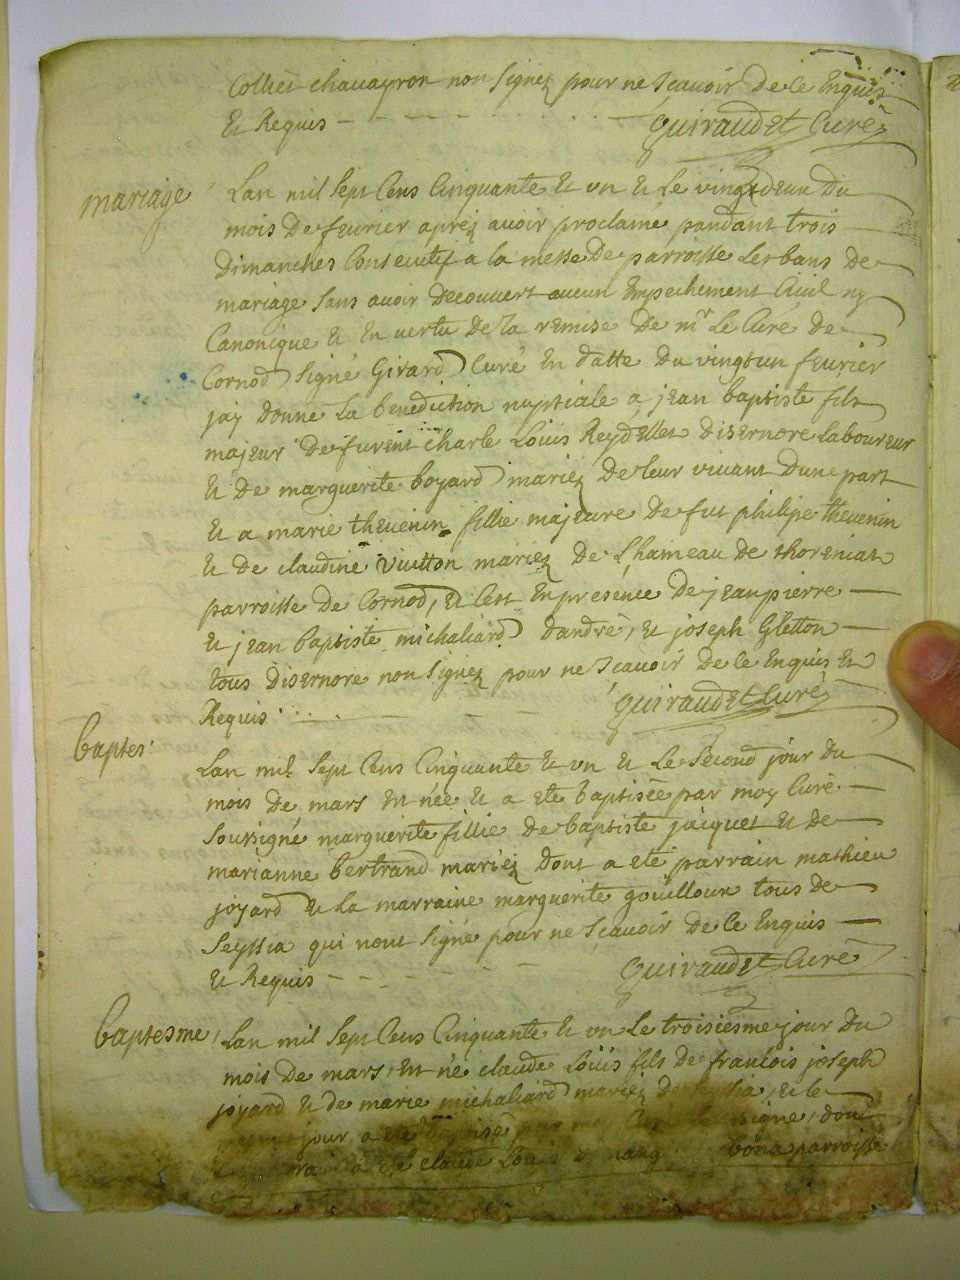 Colliet chavayron non signez pour ne scavoir de ce Enquis
Et Requis guiraudet Curé
mariage
Lan mil sept Cens Cinquante Et vn Et Le vingtdeux du
mois De feurier aprez auoir proclamé pandant trois
Dimanches Consecutif a la messe De parroisse Les bans de
mariage sans auoir decouuert aucun Empechement Ciuil ny
Canonique Et En vertu de la remise De mr Le Curé de
Cornod signé Girard Curé En datte du vingtun feurier
jay donné La benediction nuptiale a jean baptiste fils
majeur De furent charle Louis Reydellet disernore laboureur
Et De marguerite boyard mariez De leur viuant dune part
Et a marie thevenin fillie majeure de fut philipe thevenin
Et de claudine vuitton mariez De Lhameau de thoreniat
parroisse de Cornod, Et Cest En presence De jean pierre
Et jean baptiste michaliard dandré, Et joseph Gletton
tous Disernore non signez pour ne scavoir de ce Enquis Et
Requis guiraudet Curé
baptes
Lan mil sept Cens Cinquante Et vn Et Le second jour du
mois de mars Est née Et a ete baptisée par moy Curé
soussigné marguerite fillie de baptiste jacquet Et de
marianne bertrand mariez dont a eté parrain mathieu
joyard Et La marraine marguerite gouilloux tous de
seyssia qui nont signé pour ne scavoir De Ce Enquis
Et Requis guiraudet Curé
baptesme
Lan mil sept Cens Cinquante Et vn Le troisiesme jour Du
mois De mars, Est né claude Louis fils de francois joseph
joyard Et de marie michaliard mariez de seyssia, Et le
jour a eté signé, dont
eté claude Louis parroisse